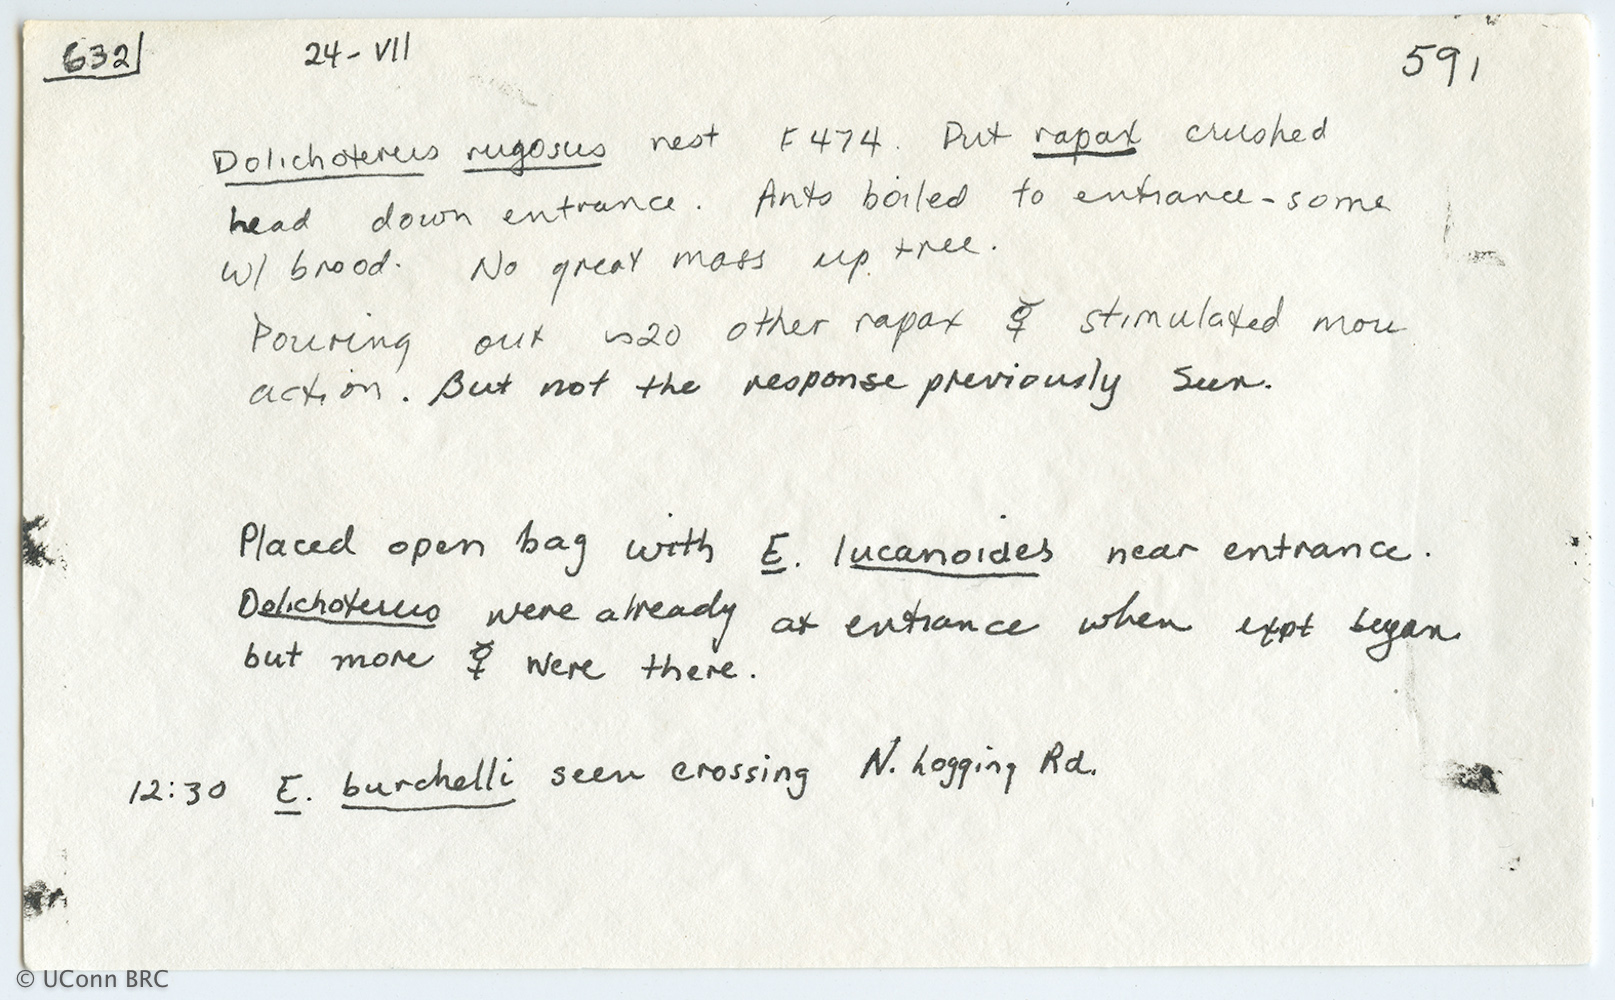 632 24-VII 591
Dolichoterus rugosus nest F474. Put rapax crushed
head down entrance. Ants boiled to entrance-some
w/ brood. No great mass up tree.
Pouring out ~20 other rapax ☿ stimulated more
action. But not the response previously seen.
Placed open bag with E. lucanoides near entrance.
Dolichoterus were already at entrance when expt began
but more ☿ were there.
12:30 E. burchelli seen crossing N. Logging Rd.
© UConn BRC